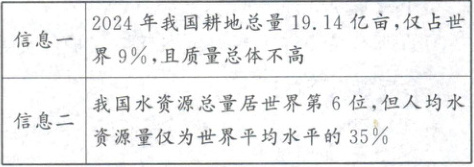 信息一
2024年我国耕地总量19.14亿亩,仅占世
界9%,且质量总体不高
信息二
我国水资源总量居世界第6位,但人均水
资源量仅为世界平均水平的35%